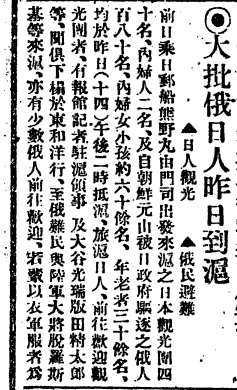 ◉大批俄日人昨日到滬
▲日人觀光　▲俄民避難
前日乘日郵船熊野丸由門司出發來滬之日本觀光團四
十名、內婦人二名、及自朝鮮元山被日政府驅逐之俄人
百八十名、內婦女小孩約六十餘名、年老者三十餘名、
均於昨日(十四)午後二時抵滬、旅滬日人、前往歡迎觀
光團者、有報館記者駐滬領事、及大谷光瑞版田精太郎
等、聞俱下榻於東和洋行、至俄難民與陸軍大將脫羅斯
基等來滬、亦有少數俄人前往歡迎、衣軍服者為